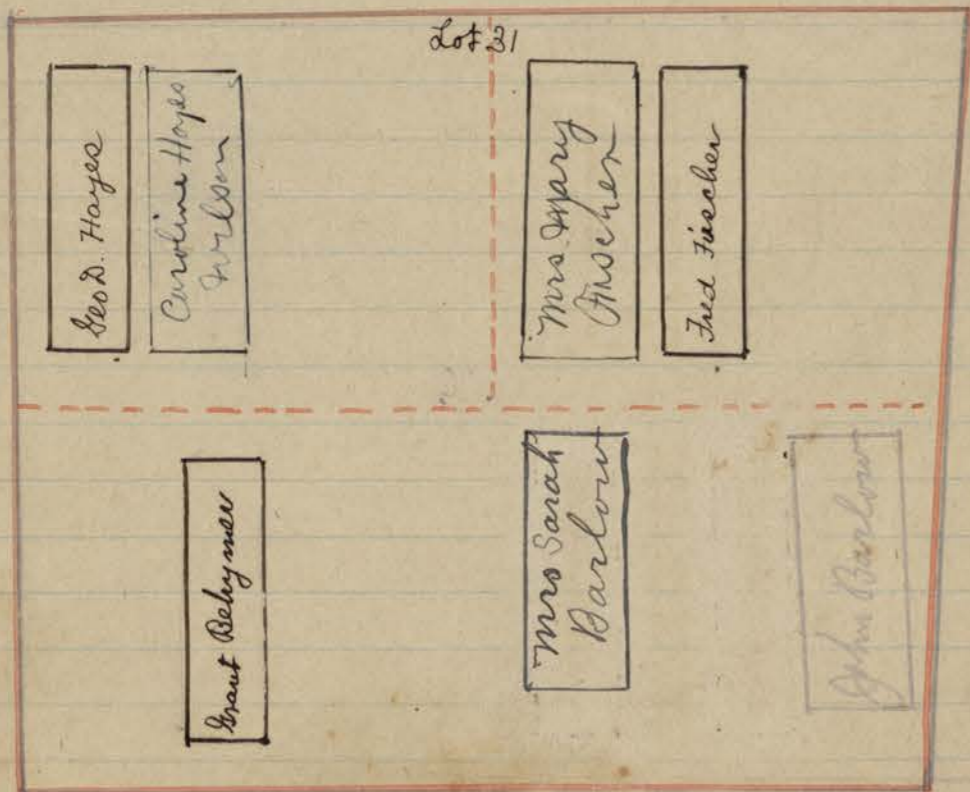 Lot 31
Geo D. Hayes
Caroline Hayes
Wilson
Mrs. Mary
Fischer
Fred Fischer
Grant Behymer
Mrs Sarah
Barlow
John Barlow